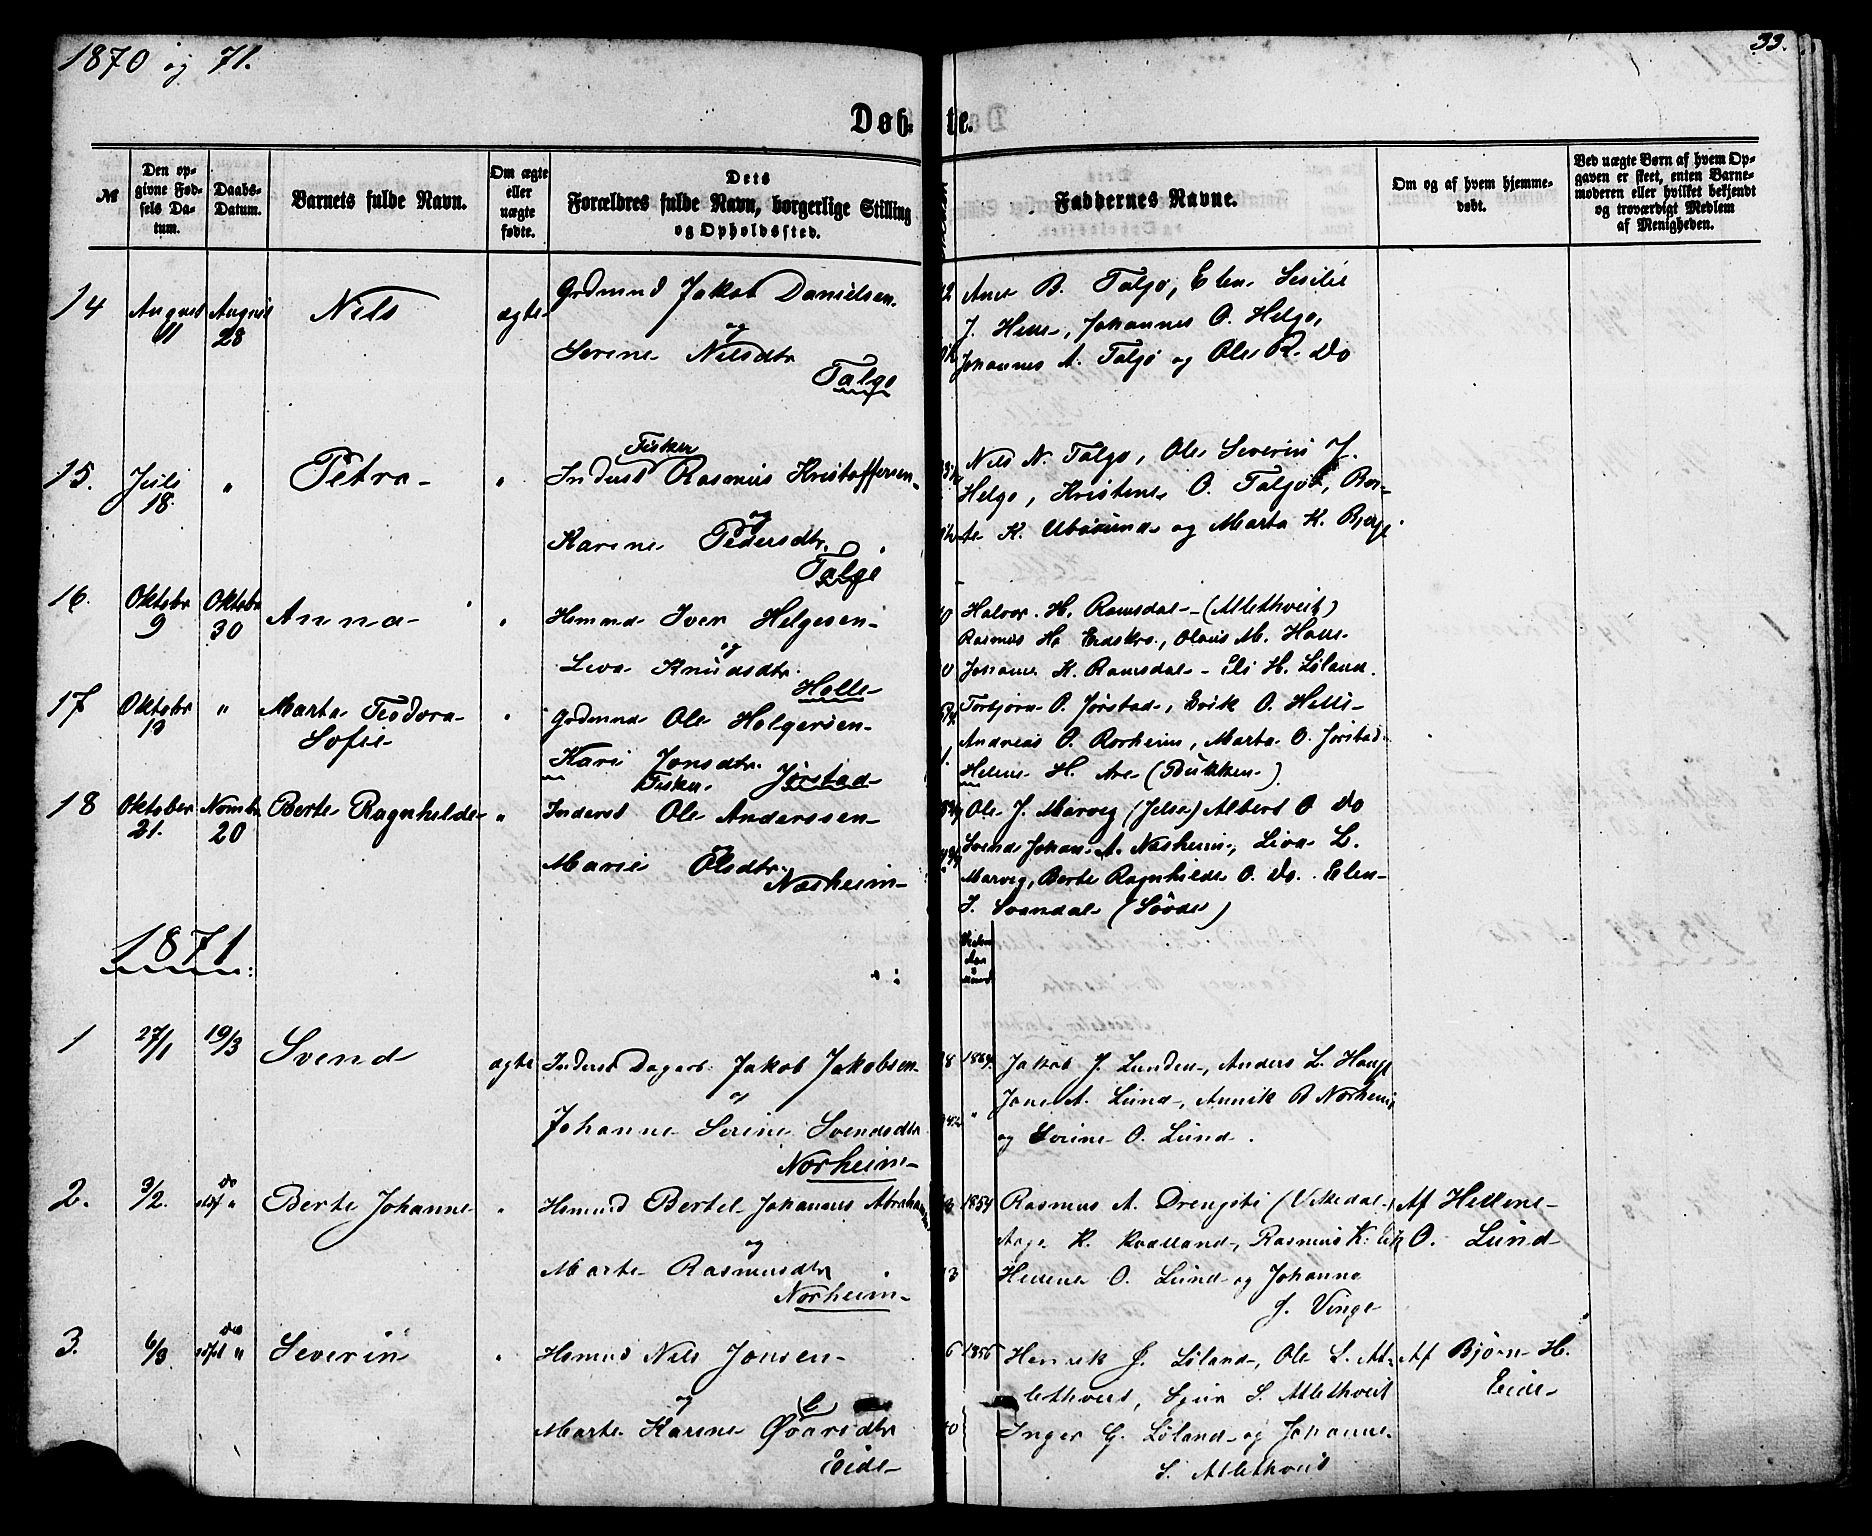 1870 og 71.
33.
Døb- te.
№
Den opgivne Fødsels Datum.
Daabs-Datum.
Barnets fulde Navn.
Om ægte eller uægte fødte.
Dets Forældres fulde Navn, borgerlige Stilling og Opholdssted.
Faddernes Navne.
Om og af hvem hjemmedøbt.
Ved uægte Børn af hvem Opgaven er skeet, enten Barnemoderen eller hvilket bekjendt og troværdigt Medlem af Menigheden.
14 August 11 August 28 Nils ægte
Grdmnd Jakob Danielsen
og
Serine Nilsdtr
Talgø
B. Talgø, Elen Sesilie
J. Helle, Johannes O. Helgø,
Johannes A. Talgø og Ole R. Do
15. Juli 18. " Petra "
Fisker
Inderst Rasmus Kristoffersen
og
Karine Pedersdtr.
Talgø
Nils N. Talgø, Ole Severin J.
Helgø, Kristene O. Talgø, Ber-
te K. og Marta K. Bjerge
16. Oktobr 9 Oktobr 30 Anna "
Hsmnd Iver Helgesen
og
Liva Knudsdtr.
Helle
Halvor H. Ramsdal (Atlethveit)
Rasmus H. Olaus M. Helle
Johanne K. Ramsdal Eli H. Løland.
17 Oktobr 13 " Marta Teodora
Sofie "
Grdmnd Ole Helgesen
Kari Jonsdtr.
Jørstad
Torbjørn O. Jørstad, Eirik O. Helle
Andreas O. Rørheim, Marta O. Jørstad
Helene H. Are (Bukken)
18 Oktober 21. Novmbr 20 Berte Ragnhilde "
Fisker
Inderst Ole Anderssen
Marie Olsdtr.
Næsheim
Ole J. Marvig (Jelsa) Albert O Do
Svend Johan A. Næsheim, Liva L.
Marvig, Berte Ragnhilde O. Do. Elen
J. Svendal (Søvde)
1871
1 27/1 19/3 Svend ægte
Inderst Dagarb. Jakob Jakobsen
og
Johanne Serine Svendsdtr
Norheim
8 1869.
Jakob J. Lunden, Anders L. Hauge
Jone A. Lund, Annik B Norheim
og Serine O. Lund.
2. 3/2. do " Berte Johanne "
Hsmnd Bertel Johannes Abrahamsen
og
Marte Rasmusdtr
Norheim
1854
Rasmus A. Drengsti (Vikedal)
Aage K. Kvalland, Rasmus K. Eik
Hellene O. Lund og Johanna
J. Vinge
Af Hellene
O. Lund
3. 6/3 do " Severin "
Hsmnd Nils Jonsen
og
Marte Karine Øvarsdtr
Eide
6 1856
Henrik J. Løland, Ole L. At-
lethveit, Sjur S. Atlethveit
Inger G. Løland og Johanne
S. Atlethveit
Af Bjørn H.
Eide